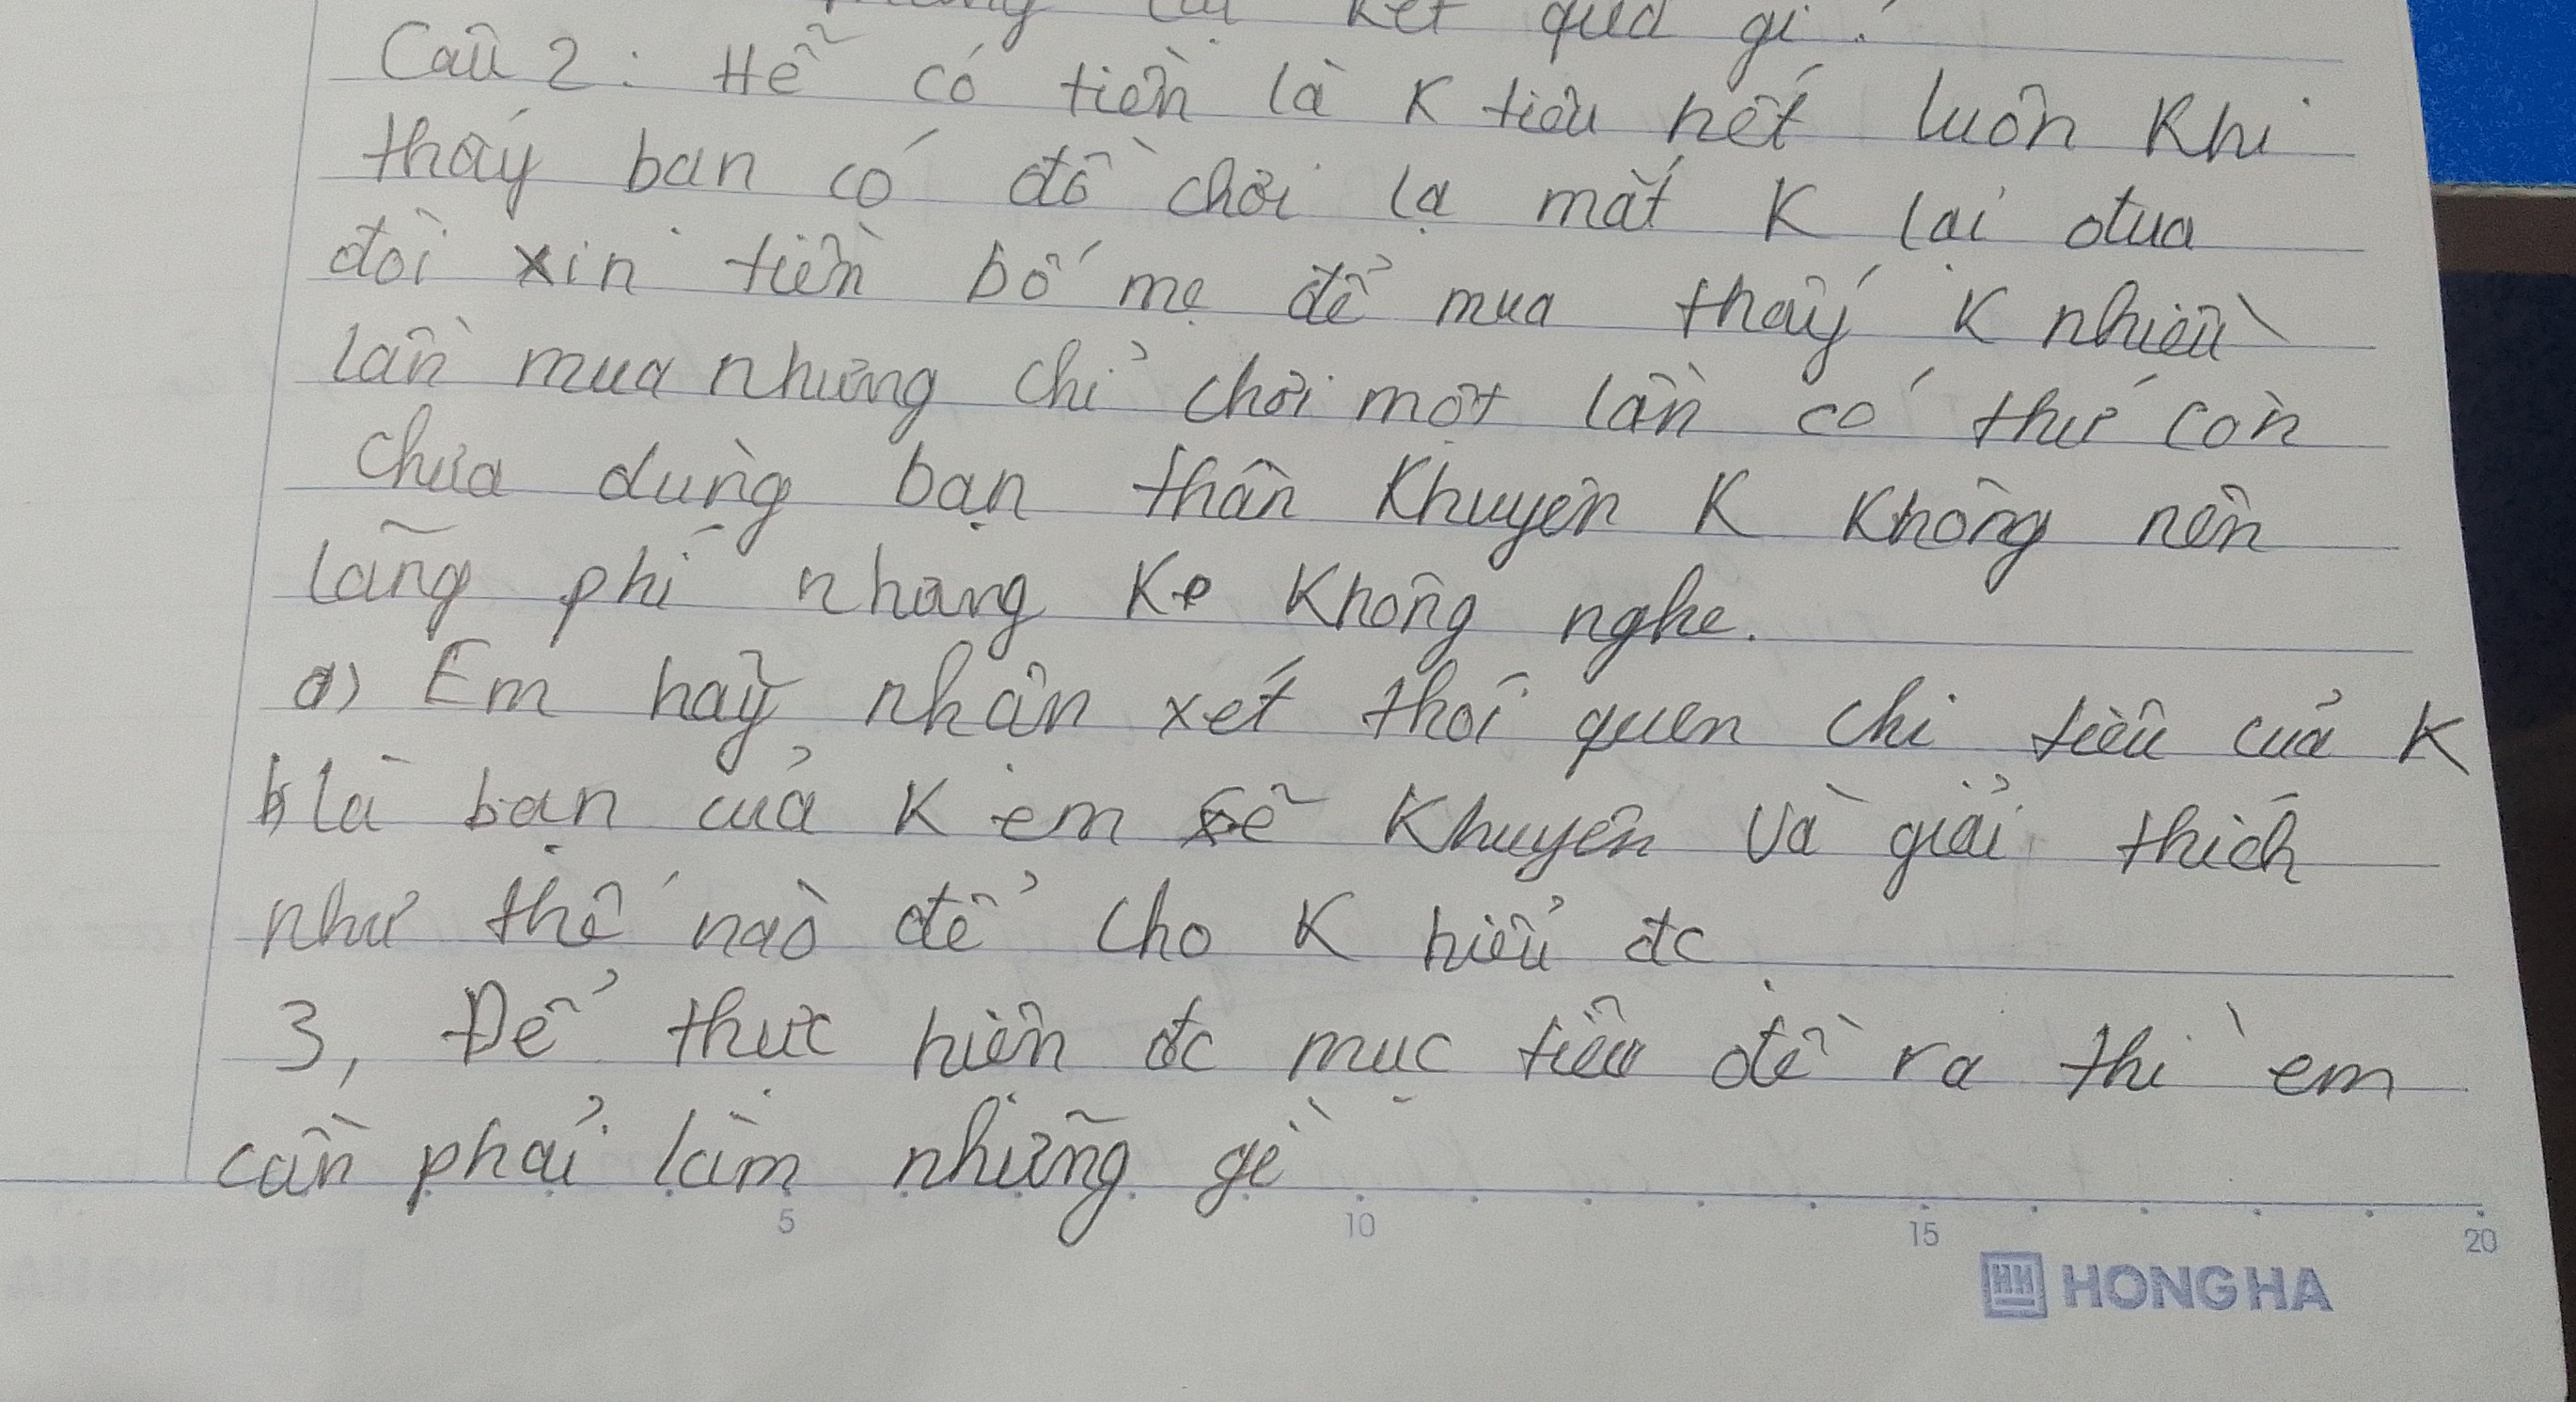 kết quả gì?
Câu 2: Hễ có tiền là K tiêu hết luôn Khi
thấy bạn có đồ chơi lạ mắt K lại đua
đòi xin tiền bố mẹ để mua thấy K nhiều
lần mua nhưng chỉ chơi một lần có thứ còn
chưa dùng bạn thân Khuyên K Không nên
lãng phí nhưng K Không nghe.
a) Em hãy nhận xét thói quen chi tiêu của K
b) là bạn của K em sẽ Khuyên và giải thích
như thế nào để cho K hiểu đc
3, Để thực hiện đc mục tiêu đề ra thì em
cần phải làm những gì
5 10 15 20
HONG HA